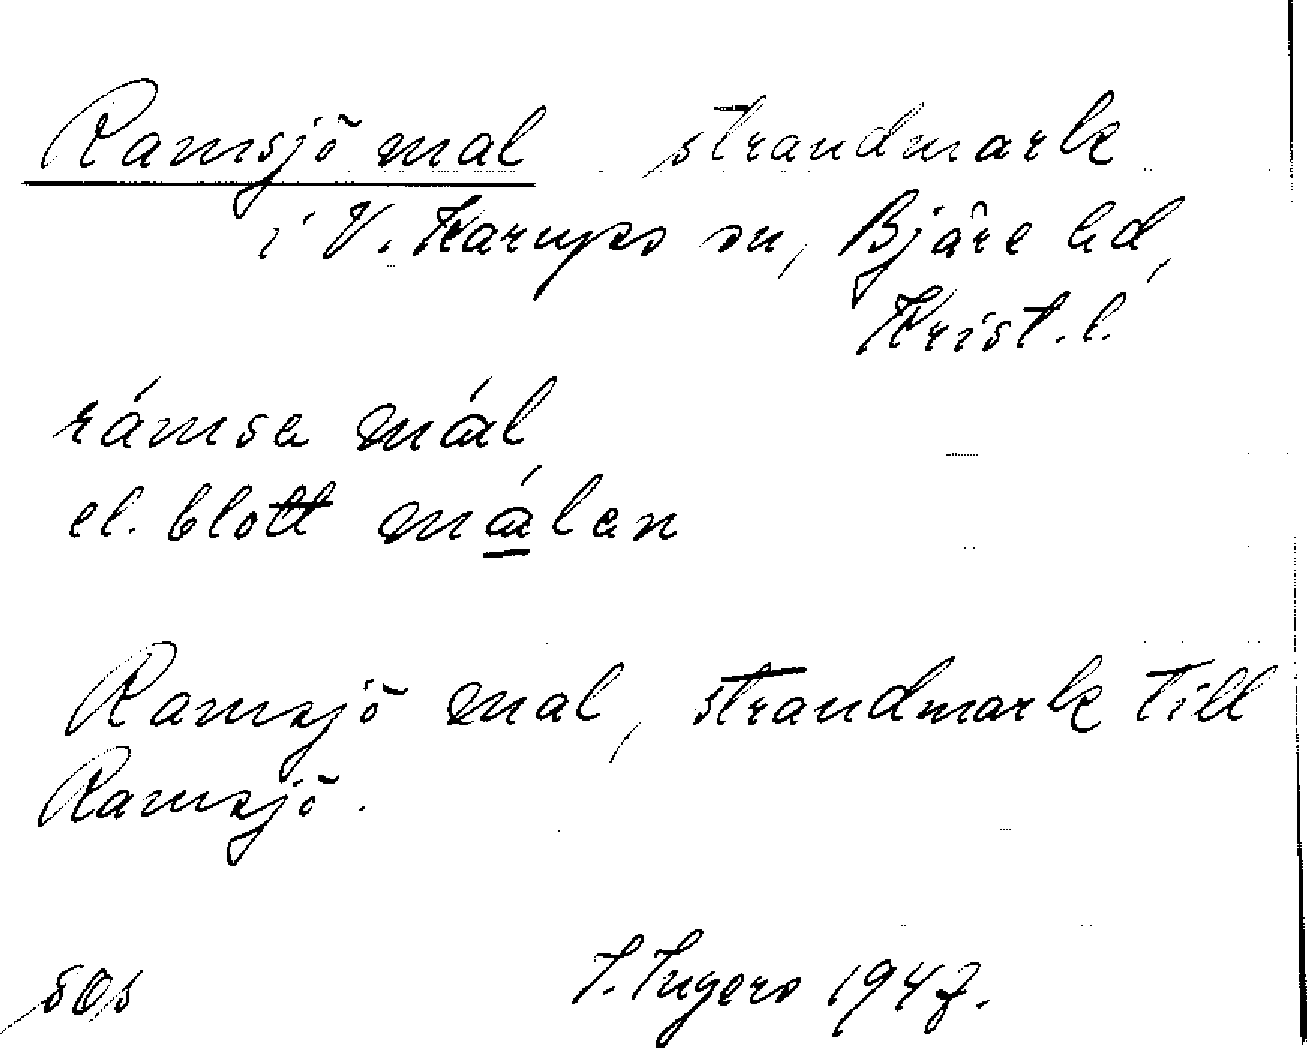 Ramsjö mal strandmark
i V. Karups sn, Bjäre hd,
Krist. l.
rámsa mál
el. blott málan
Ramsjö mal, strandmark till
Ramsjö.
I. Ingers 1947.